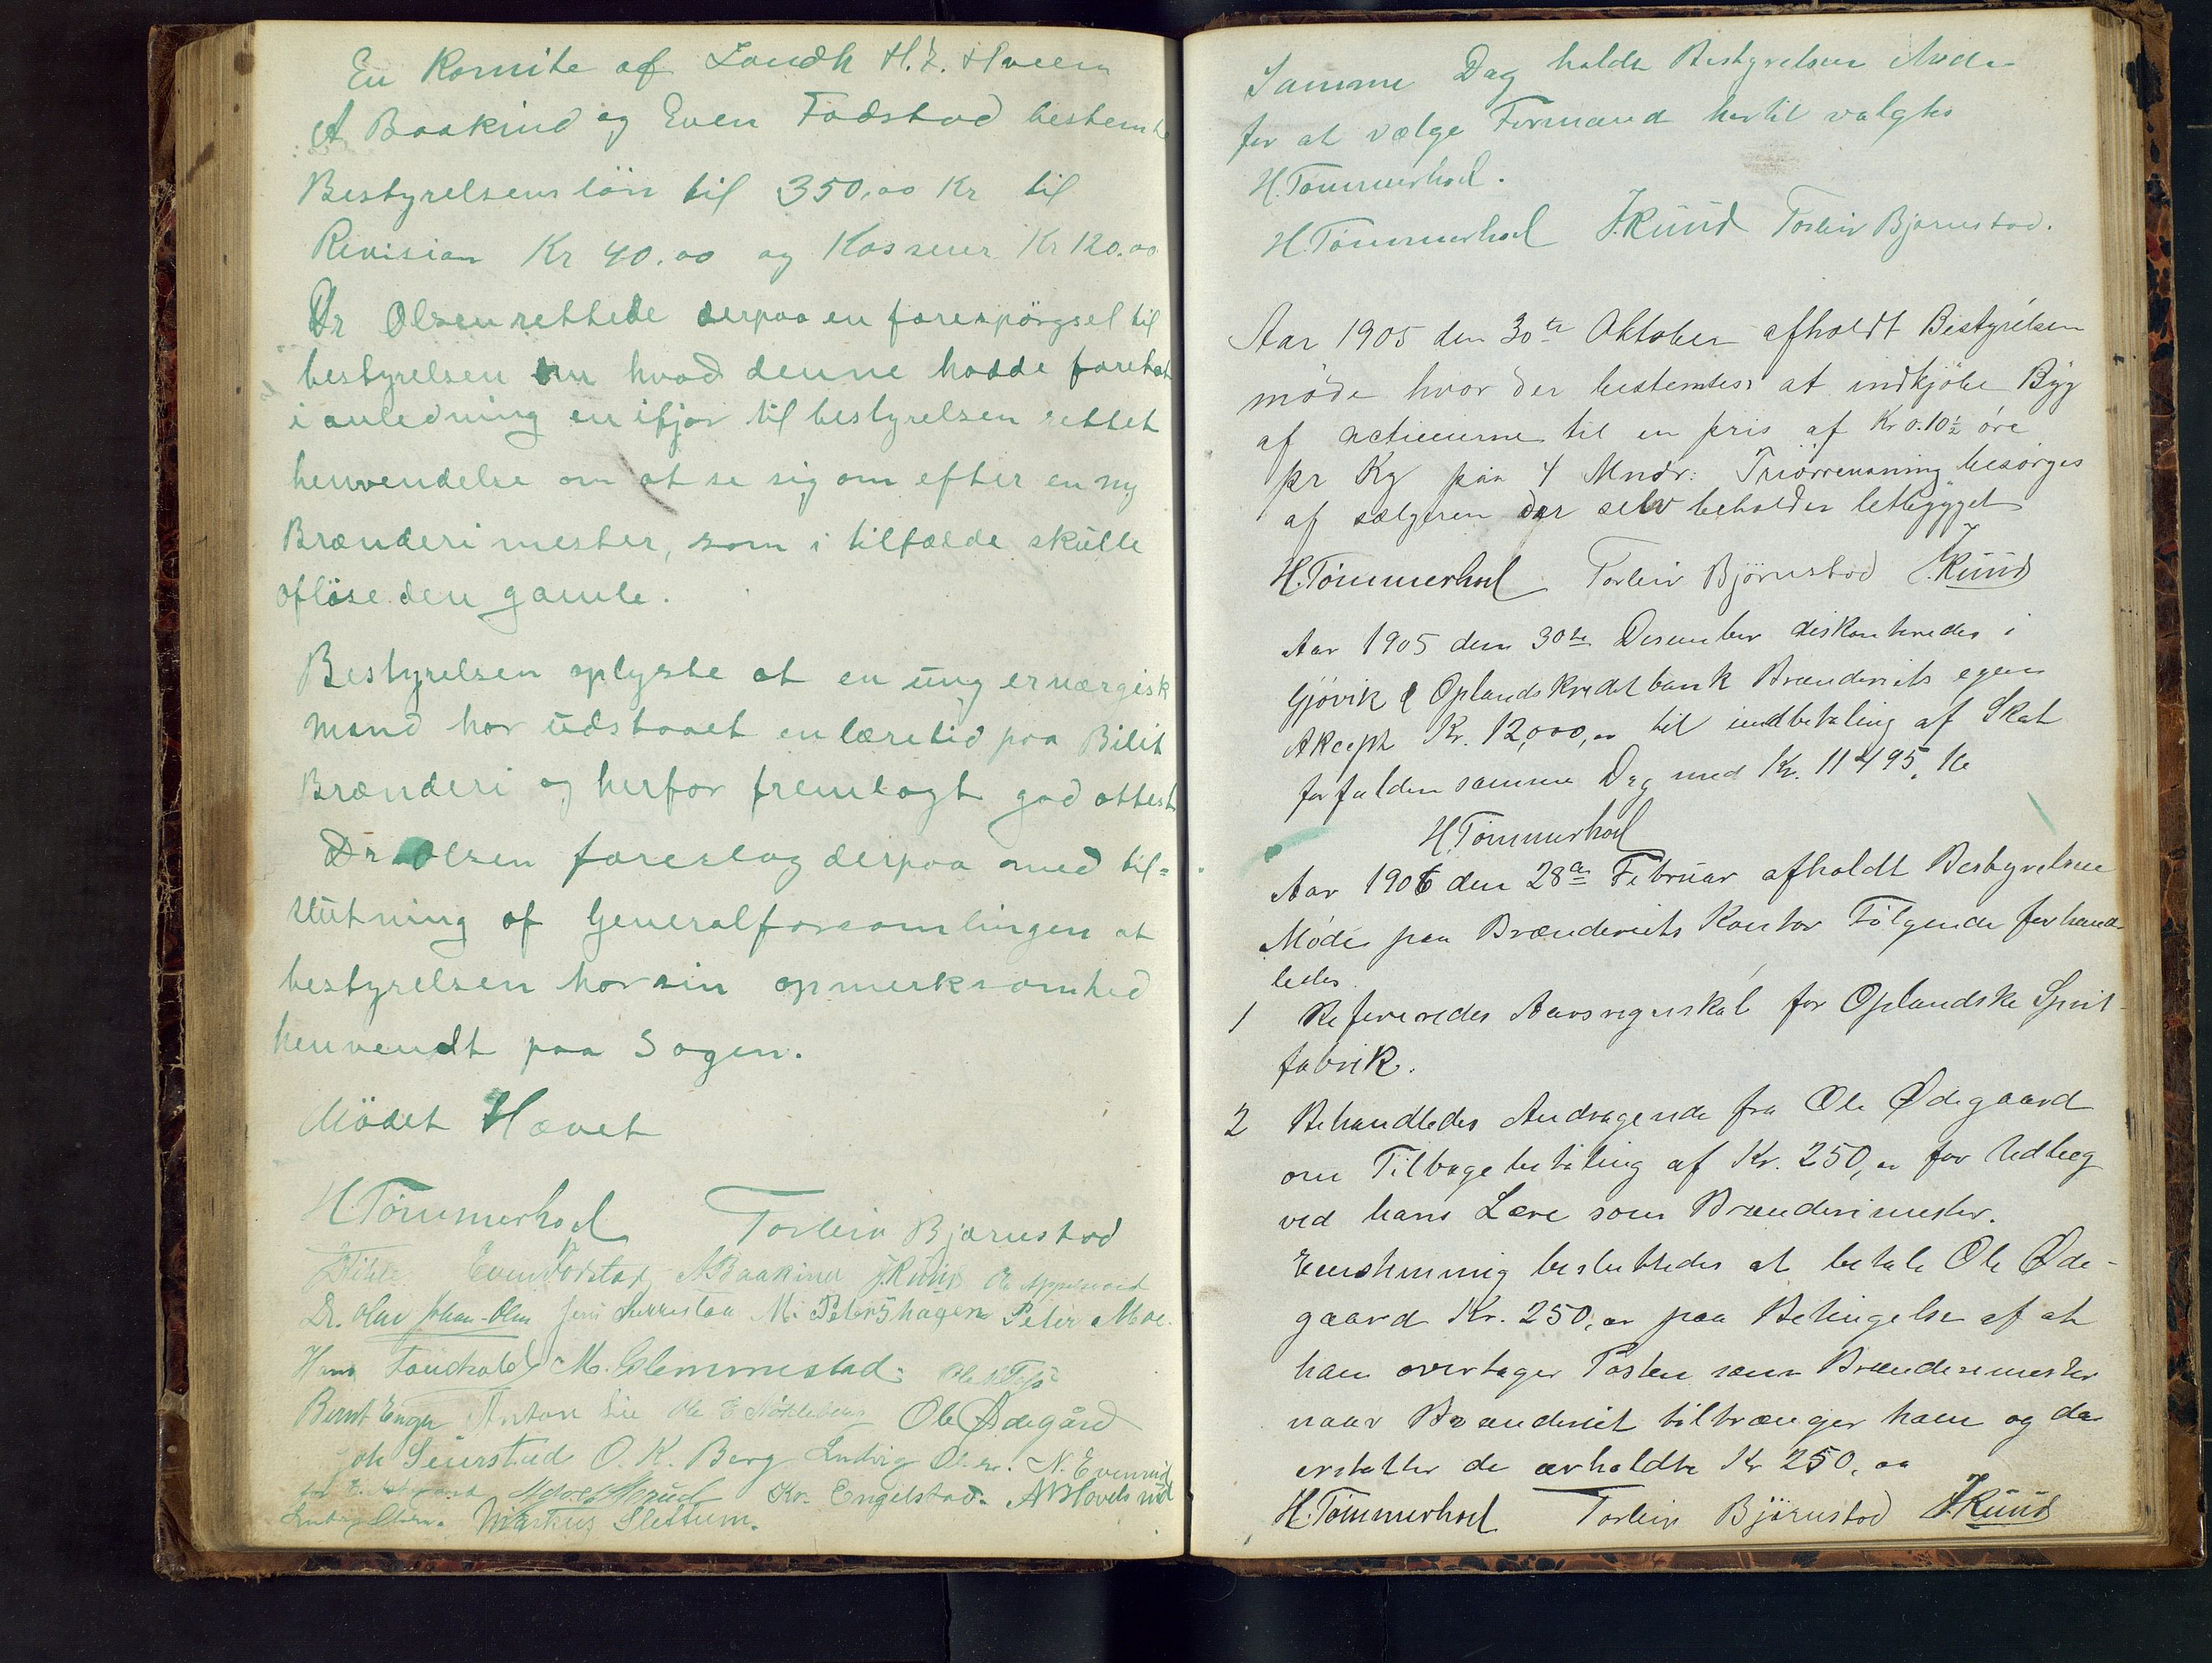 En Komite af Landh H. L. Hveem
A Baakind og Even Fodstad bestemte
Bestyrelsens lön til 350.00 Kr til
Revision Kr 40.00 og Kasserer Kr 120.00
Dr Olsen rettede derpaa en forespörgsel til
bestyrelsen om hvad denne hadde foretat
i anledning en ifjor til bestyrelsen rettet
henvendelse om at se sig om efter en ny
Brænderimester, som i tilfælde skulle
aflöse den gamle.
Bestyrelsen oplyste at en ung ernærgisk
mand har udstaaet en læretid paa Bilit
Brænderi og herfor fremlagt god attest
Dr Olsen foreslog derpaa med til=
slutning af Generalforsamlingen at
bestyrelsen har sin opmerksomhed
henvendt paa Sagen.
Mödet Hævet
H. Tömmerhol Torlein Bjørnstad
Even Fodstad A Baakind J. Ruud Ole
Dr. Olsen Johan Olsen Jens M. Petershagen Peter Moe.
Hans M. Glemmestad. Ole
Bernt Enger Anton Lie Ole E Ole Ødegård
Seierstad O. K. Berg Ludvig Olsen. N. Evenrud
Kr. Engelstad. A. Hovelsrud
Markus Slettum.
Samme Dag holdt Bestyrelsen Møde
for at vælge Formand hertil valgtes
H. Tömmerhol.
H. Tömmerhol J. Ruud Torlein Bjørnstad.
Aar 1905 den 30te Oktober afholdt Bestyrelsen
möde hvor der bestemtes at indkjöbe Byg
af actieeierne til en pris af Kr 0.10½ öre
pr Kg paa 4 Mndr: Triörrensning besörges
af sælgeren der selv beholder letbygget
H. Tömmerhol Torlein Björnstad J. Ruud
Aar 1905 den 30te Desember diskonteredes i
Gjövik & Oplands kredit bank Brænderiets egen
Akcept Kr. 12,000,00 til indbetaling af Skat
forfalden samme Dag med Kr. 11495,16
H. Tömmerhol
Aar 1906 den 28de Februar afholdt Bestyrelsen
Möde paa Brænderiets Kontor Fölgende forhand-
ledes.
1 Refereredes Aarsregnskab for Oplandske Sprit-
fabrik.
2 Behandledes Andragende fra Ole Ødegaard
om Tilbagebetaling af Kr. 250,00 for Udlæg
ved hans Lære som Brænderimester.
Eenstemmig besluttedes at betale Ole Øde-
gaard Kr. 250,00 paa Betingelse af at
han overtager Posten som Brænderimester
naar Brænderiet tiltrænger ham og da
erstatter de erholdte Kr 250,00
H. Tömmerhol Torlein Björnstad J. Ruud